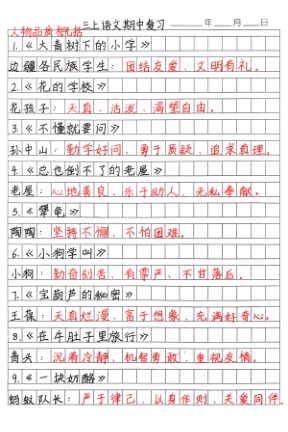 三上语文期中复习 年 月 日
人物品质概括
1.《大青树下的小学》
边疆各民族学生：团结友爱、文明有礼。
2.《花的学校》
花孩子：天真、活泼、渴望自由。
3.《不懂就要问》
孙中山：勤学好问、勇于质疑、追求真理。
4.《总也倒不了的老屋》
老屋：心地善良、乐于助人、无私奉献。
5.《犟龟》
陶陶：坚持不懈、不怕困难。
6.《小狗学叫》
小狗：勤奋刻苦、有尊严、不甘落后。
7.《宝葫芦的秘密》
王葆：天真烂漫、富于想象、充满好奇心。
8.《在牛肚子里旅行》
青头：沉着冷静、机智勇敢、重视友情。
9.《一块奶酪》
蚂蚁队长：严于律己、以身作则、关爱同伴。